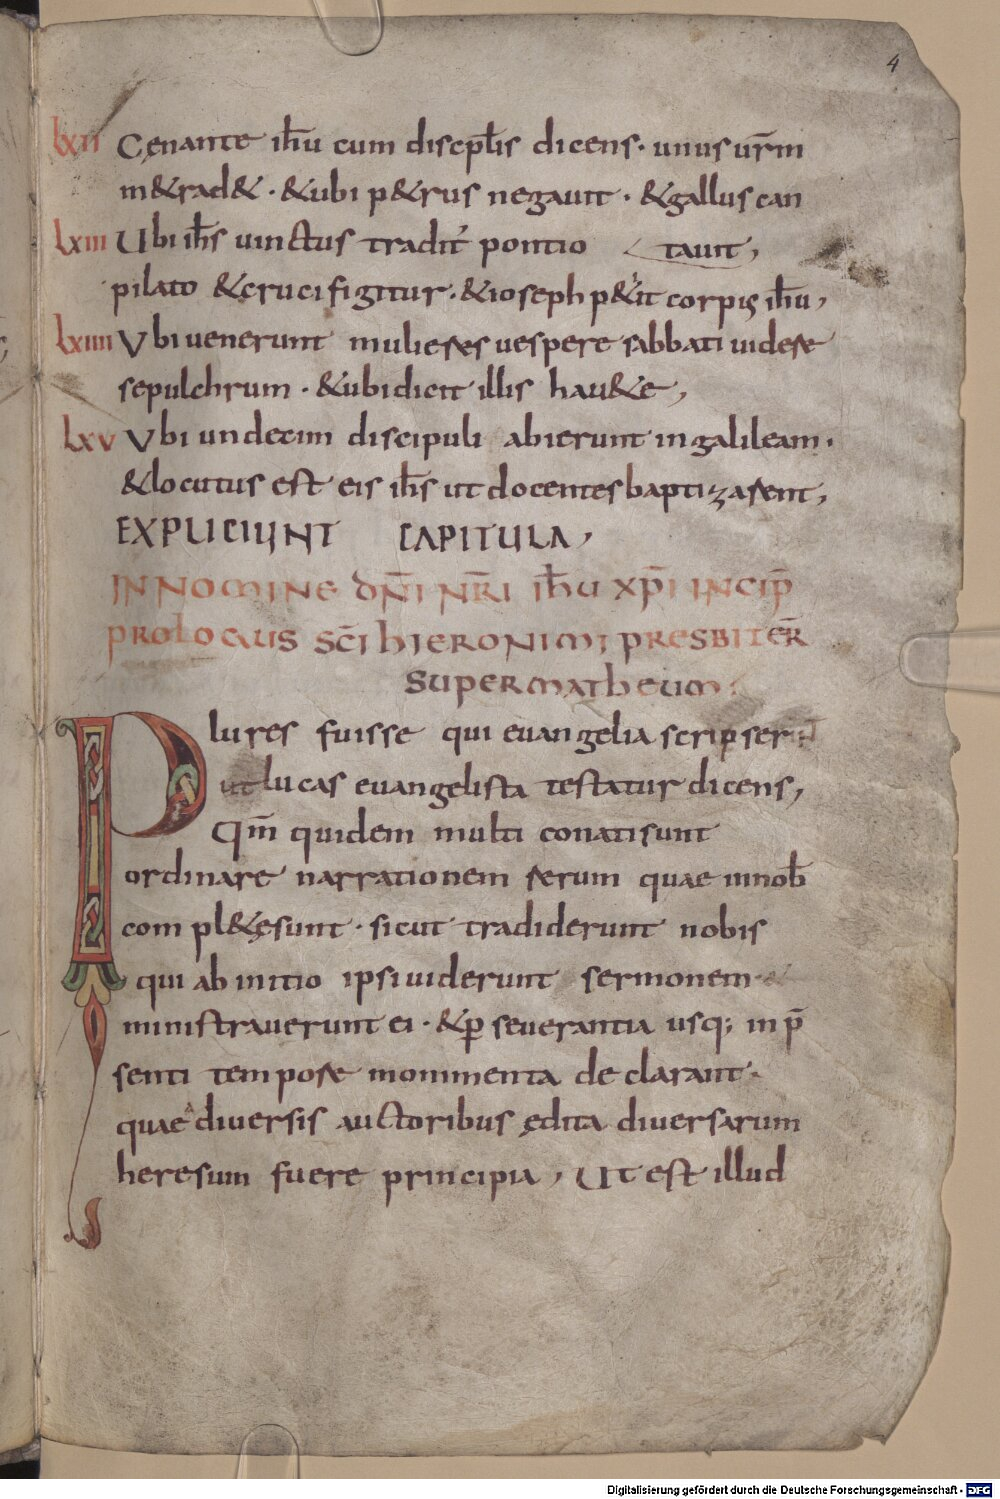 4
lxii Cęnante ih̅u cum discipl̅is dicens· unus ur̅m
m&rad& · &ubi p&rus negauit · &gallus can
lxiii Ubi ih̅s uinctus tradit̅ pontio tauit,
pilato &crucifigitur · &ioseph p&iit corpus ih̅u,
lxiiii Vbi uenerunt mulieres uespere sabbati uidere
sepulchrum · &ubi dicit illis hau&e,
lxv Vbi undecim discipuli abierunt in galileam·
&locutus est eis ih̅s ut docentes baptizarent,
EXPLICIUNT CAPITULA,
IN NOMINE DN̅I NR̅I IH̅U XP̅I INCIP̅
PROLOCUUS SC̅I HIERONIMI PRESBITER̅
SUPER MATHEUM:
Plures fuisse qui euangelia scripser
ut lucas euangelista testatur dicens,
Qm̅ quidem multi conati sunt
ordinare narrationem rerum quae innob̅
compl&ę sunt · sicut tradiderunt nobis
qui ab initio ipsi uiderunt sermonem
ministrauerunt ei · &p̲seuerantia usq; in p̅
senti tempore monimenta declarant·
quae diuersis auctoribus ędita diuersarum
heresum fuere principia, Ut est illud
Digitalisierung gefördert durch die Deutsche Forschungsgemeinschaft - DFG